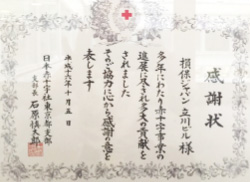 感謝状
損保ジャパン立川ビル様
多年にわたり赤十字事業の
進展に尽され多大の貢献を
されました
そのご協力に心から感謝の意を
表します
平成十六年十月五日
日本赤十字社東京都支部
支部長 石原慎太郎